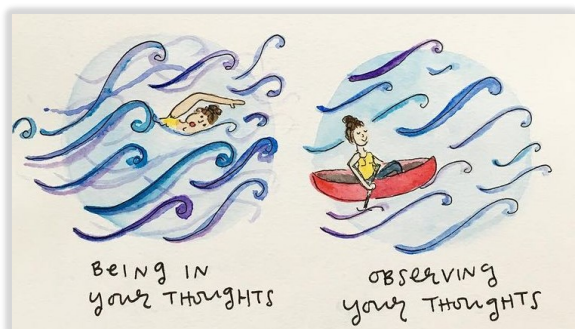 BEING IN
your THOUGHTS
OBSERVING
your THOUGHTS